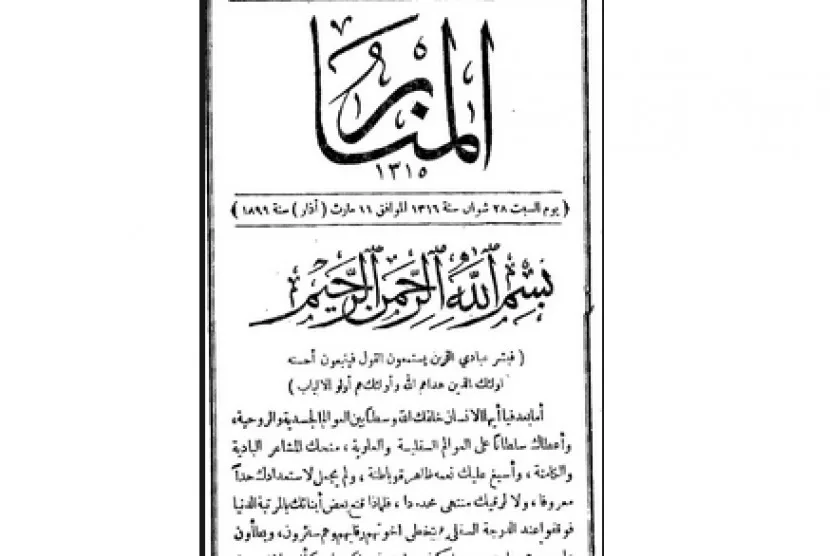 المنار
١٣١٥
( يوم السبت ٢٨ شوال سنة ١٣١٦ الموافق ١١ مارث ( آذار ) سنة ١٨٩٩ )
بِسْمِ ٱللَّهِ ٱلرَّحْمَنِ ٱلرَّحِيمِ
( فبشر عبادي الذين يستمعون القول فيتبعون أحسنه
اولئك الذين هداهم الله وأولئك هم أولو الالباب )
أما بعد فيا أيها الانسان خلقك الله وسطاً بين العوالم الجسدية والروحية،
وأعطاك سلطانا على العوالم السفلية والعلوية ، منحك المشاعر البادية
والكامنة ، وأسبغ عليك نعمه ظاهرة وباطنة ، ولم يجعل لاستعدادك حداً
معروفا ، ولا لرقيك منتهى محدودا ، فلماذا قنع بعض أبنائك بالمرتبة الدنيا
فوقفوا عند الدرجة السفلى، تتخطى اخوتهم رقابهم وهم